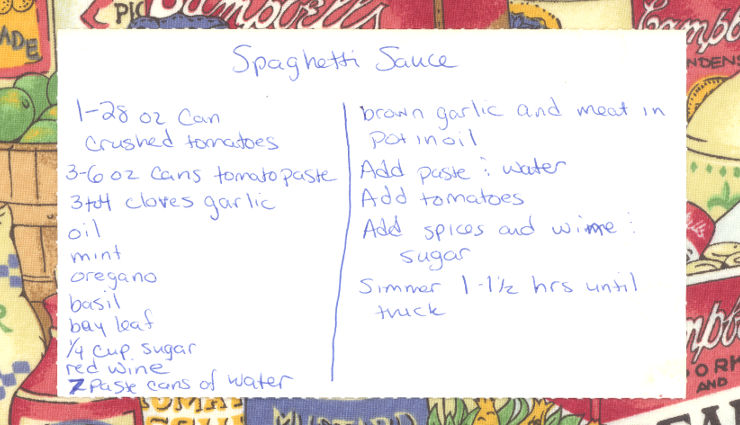 Spaghetti Sauce
1-28 oz can
crushed tomatoes
3-6 oz cans tomato paste
cloves garlic
oil
mint
oregano
basil
bay leaf
1/4 cup sugar
red wine
7 paste cans of water
brown garlic and meat in
pot in oil
Add paste : water
Add tomatoes
Add spices and wine :
sugar
Simmer 1-1 1/2 hrs until
thick
PIC
ADE
Campb
NDENS
ORK
AND
MUSTARD